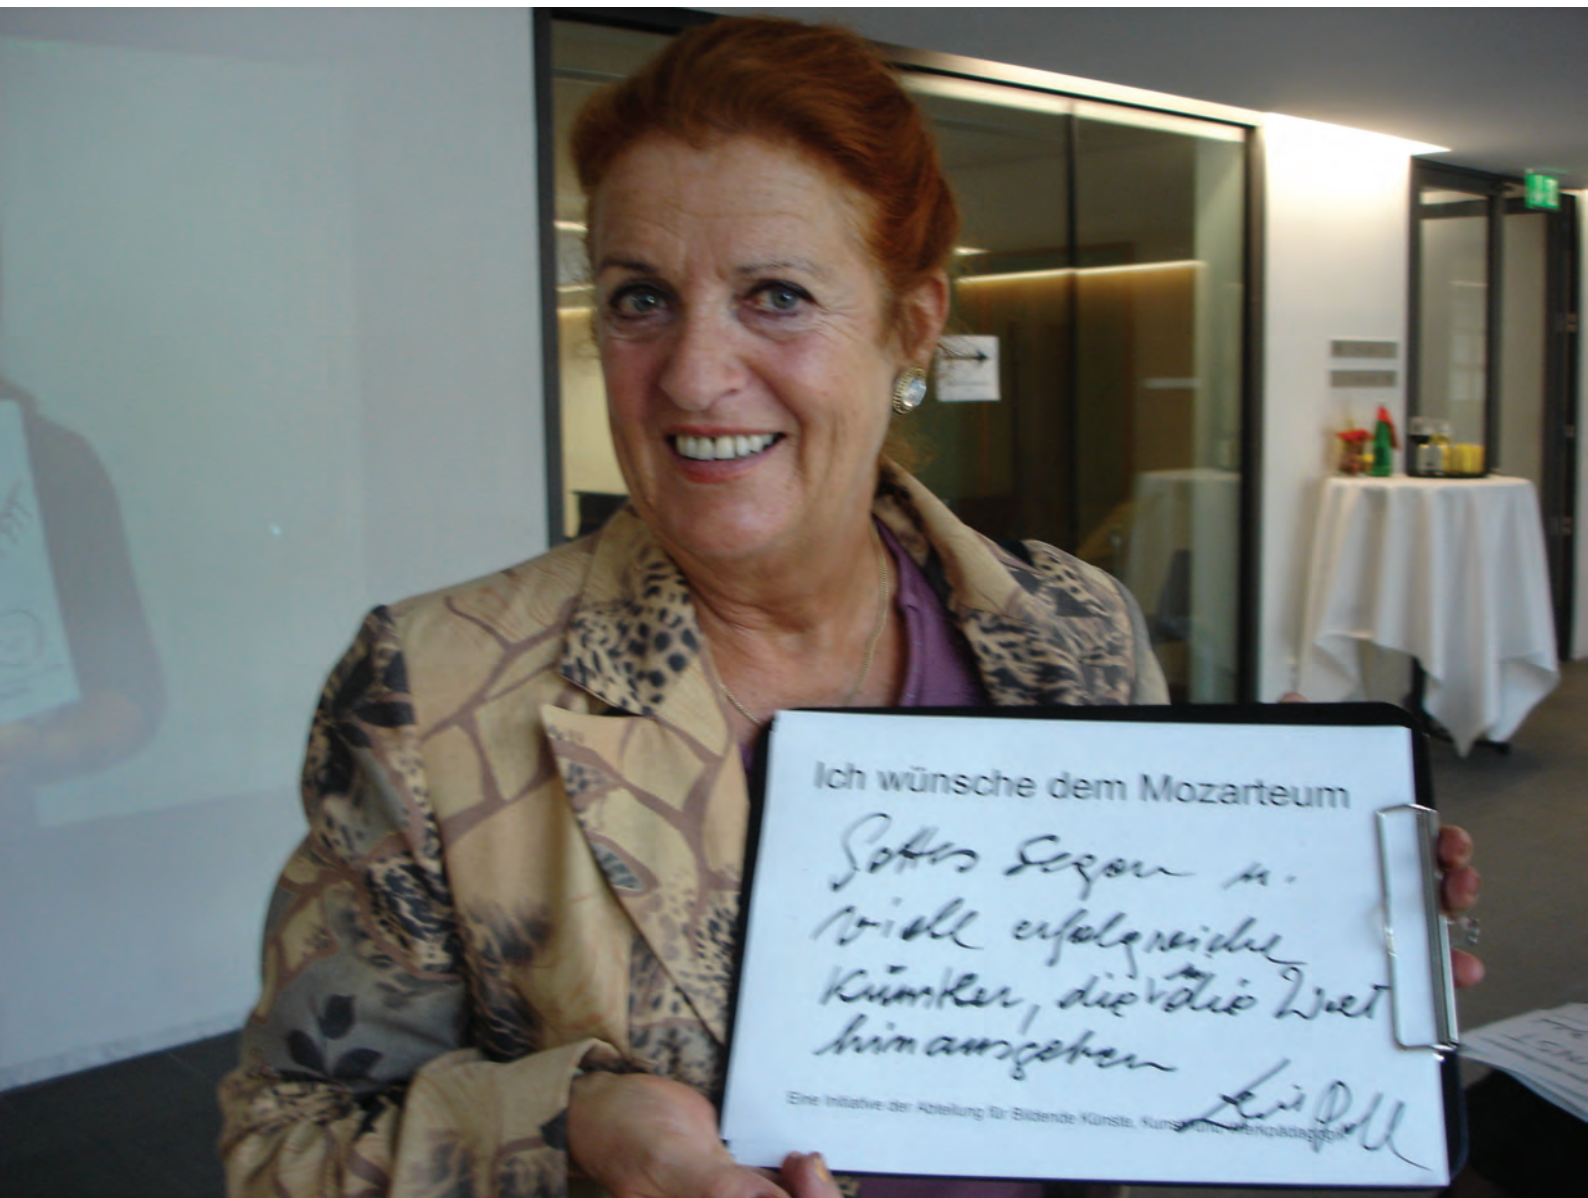 Ich wünsche dem Mozarteum
Gottes Segen u.
viele erfolgreiche
Künstler, die in die Welt
hinausgehen
Eine Initiative der Abteilung für Bildende Künste, Kunst- und Werkpädagogik